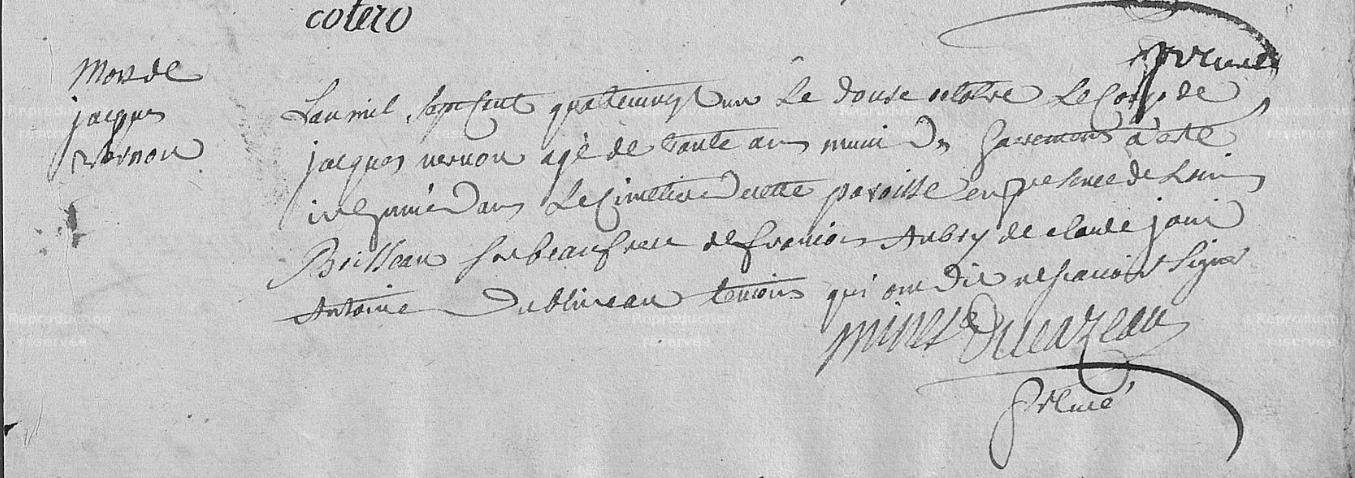 cotero
Mors de
jacques
vernon
L'an mil sept cent quatrevingt un Le douse octobre Le Corps de
jacques vernon agé de trante ans muni des sacremens a été
inhumé dans Le Cimetiere de cette paroisse en presence de Louis
Boisseau son beaufrere de francois Aubry de claude joui
Antoine Dublineau temoins qui ont dit ne scavoir signer